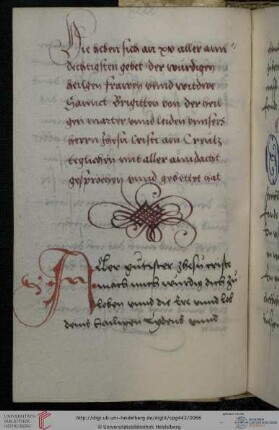 Hie heben sich an xv aller ann
dechtigsten gebet der wurdigen
heilgen frawen vnnd wittwe
Sannct Brigitten von der heil
gen marter vnnd leiden vnnsers
herrn Jhesu Cristi am Creutz
teglichen mit aller anndacht
gesprochen vnnd gebettet hat
Aller gutester Jhesu criste
mach mich wirdig dich zu
loben vnnd die ere vnnd lob
deins heiligen leydens vnnd
http://digi.ub.uni-heidelberg.de/diglit/cpg447/0066
© Universitätsbibliothek Heidelberg